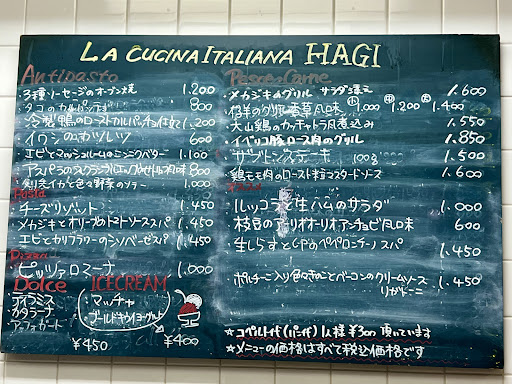 LA CUCINA ITALIANA HAGI
Antipasto
・3種ソーセージのオーブン焼 1.200
・タコのカルパッチョ 800
・冷製鴨のローストカルパッチョ仕立て 1.200
・イワシの 600
・エビとマッシュルームのニンニクバター 1.100
・アスパラのスクランブルエッグ 800
イカと色々野菜の 900
Pasta
・チーズリゾット 1.450
・メカジキとオリーブのトマトソース スパ 1.450
・エビとカリフラワーのジェノベーゼ スパ 1.450
Pizza
・ピッツァ ロマーナ 1.000
Dolce
ティラミス
カタラーナ
アッフォガート
¥450
ICECREAM
マッチャ
ゴールドキウイヨーグルト
¥400
Pesce・Carne
・メカジキのグリル サラダ添え 1.600
・仔羊のグリル 香草風味 1.000 1.200 1.400
・大山鶏のカッチャトラ風煮込み 1.550
・イベリコ豚ロース肉のグリル 1.850
・サガリステーキ 100g 1.500
・鶏モモ肉のロースト 粒マスタードソース 1.600
・ルッコラと生ハムのサラダ 1.000
・枝豆のアーリオオーリオ アンチョビ風味 600
・生しらすと のペペロンチーノ スパ 1.450
・ポルチーニ入り色々きのことベーコンのクリームソース 1.450
リガトーニ
☆コペルト代(パン代) 1人様 ¥300 頂いています
☆メニューの価格はすべて税込価格です